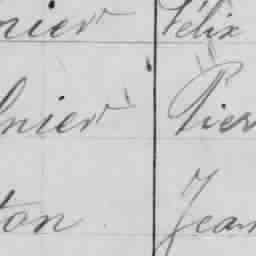 nier Félix
nier Pier
ton Jean